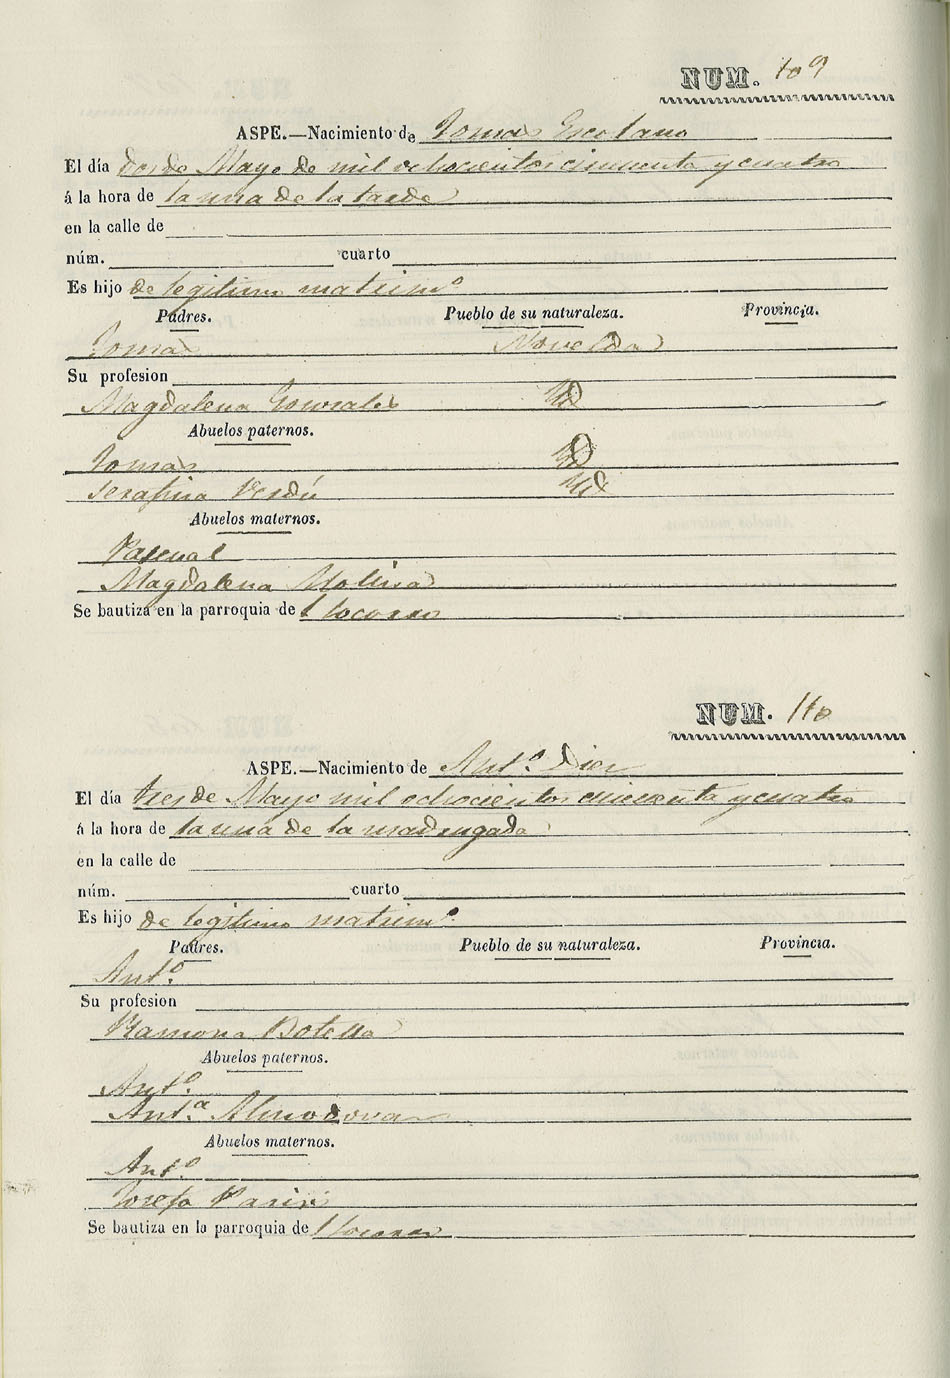 NUM. 109
ASPE.—Nacimiento de Tomas Escolano
El día dos de Mayo de mil ochocientos cincuenta y cuatro
á la hora de la una de la tarde
en la calle de
núm. cuarto
Es hijo de legitimo matrimº
Padres. Pueblo de su naturaleza. Provincia.
Tomas Novelda
Su profesion
Magdalena Gonzales Id
Abuelos paternos.
Tomas Id
Serafina Verdú Id
Abuelos maternos.
Pascual
Magdalena Molina
Se bautiza en la parroquia de l Socorro
NUM. 110
ASPE.—Nacimiento de Antº Dies
El día tres de Mayo mil ochocientos cincuenta y cuatro
á la hora de la una de la madrugada
en la calle de
núm. cuarto
Es hijo de legitimo matrimº
Padres. Pueblo de su naturaleza. Provincia.
Antº
Su profesion
Ramona Botella
Abuelos paternos.
Antº
Antª Almodovar
Abuelos maternos.
Antº
Josefa
Se bautiza en la parroquia de l Socorro